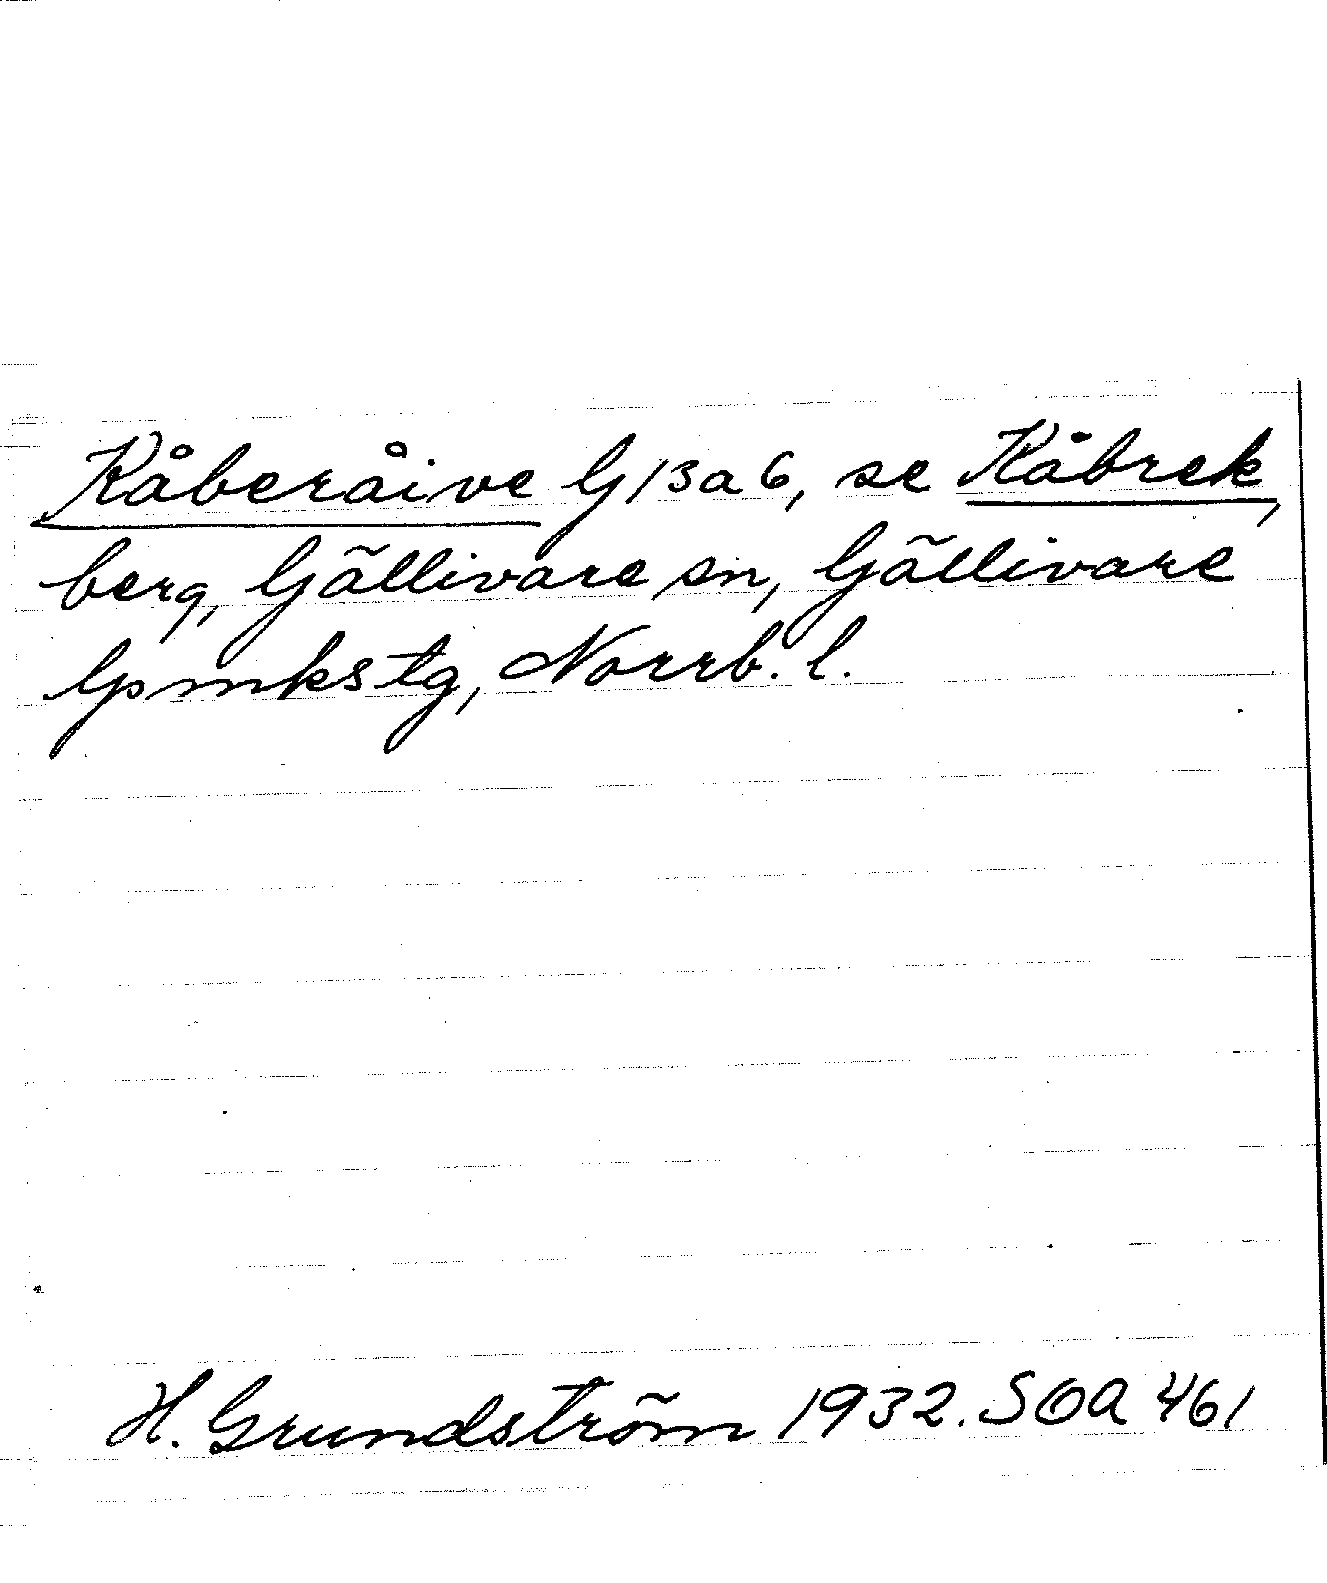 Kåberåive G13a6, se Kåbrek,
berg, Gällivare sn, Gällivare
lpmkstg, Norrb. l.
H. Grundström 1932. SOA 461